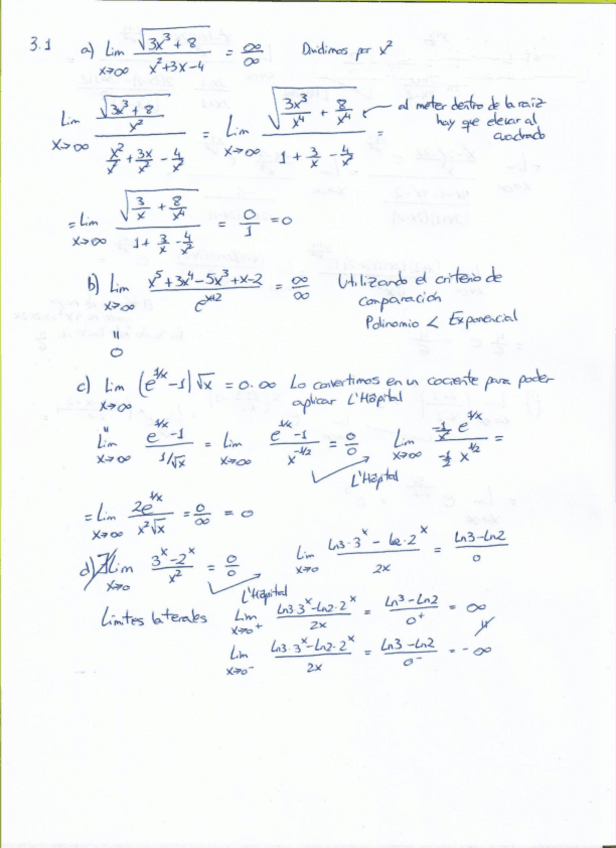 3.1 a) Lim x→∞ √(3x³+8) / (x²+3x-4) = ∞/∞ Dividimos por x²
Lim x→∞ (√(3x³+8) / x²) / (x²/x² + 3x/x² - 4/x²) = Lim x→∞ √(3x³/x⁴ + 8/x⁴) / (1 + 3/x - 4/x²) = ← al meter dentro de la raiz
hay que elevar al
cuadrado
= Lim x→∞ √(3/x + 8/x⁴) / (1 + 3/x - 4/x²) = 0/1 = 0
b) Lim x→∞ (x⁵+3x⁴-5x³+x-2) / e^(x+2) = ∞/∞ Utilizando el criterio de
comparación
Polinomio < Exponencial
"
0
c) Lim x→∞ (e^(1/x) -1) √x = 0·∞ Lo convertimos en un cociente para poder
aplicar L'Hôpital
"
Lim x→∞ (e^(1/x) -1) / (1/√x) = Lim x→∞ (e^(1/x) -1) / x^(-1/2) = 0/0 Lim x→∞ (-1/x² e^(1/x)) / (-1/2 x^(1/2)) =
L'Hôpital
= Lim x→∞ 2e^(1/x) / (x²√x) = 0/∞ = 0
d) ∄ Lim x→0 (3^x - 2^x) / x² = 0/0 Lim x→0 (ln3·3^x - ln2·2^x) / 2x = (Ln3-Ln2) / 0
L'Hôpital
Límites laterales Lim x→0⁺ (Ln3·3^x - Ln2·2^x) / 2x = (Ln3-Ln2) / 0⁺ = ∞
Lim x→0⁻ (Ln3·3^x - Ln2·2^x) / 2x = (Ln3-Ln2) / 0⁻ = -∞